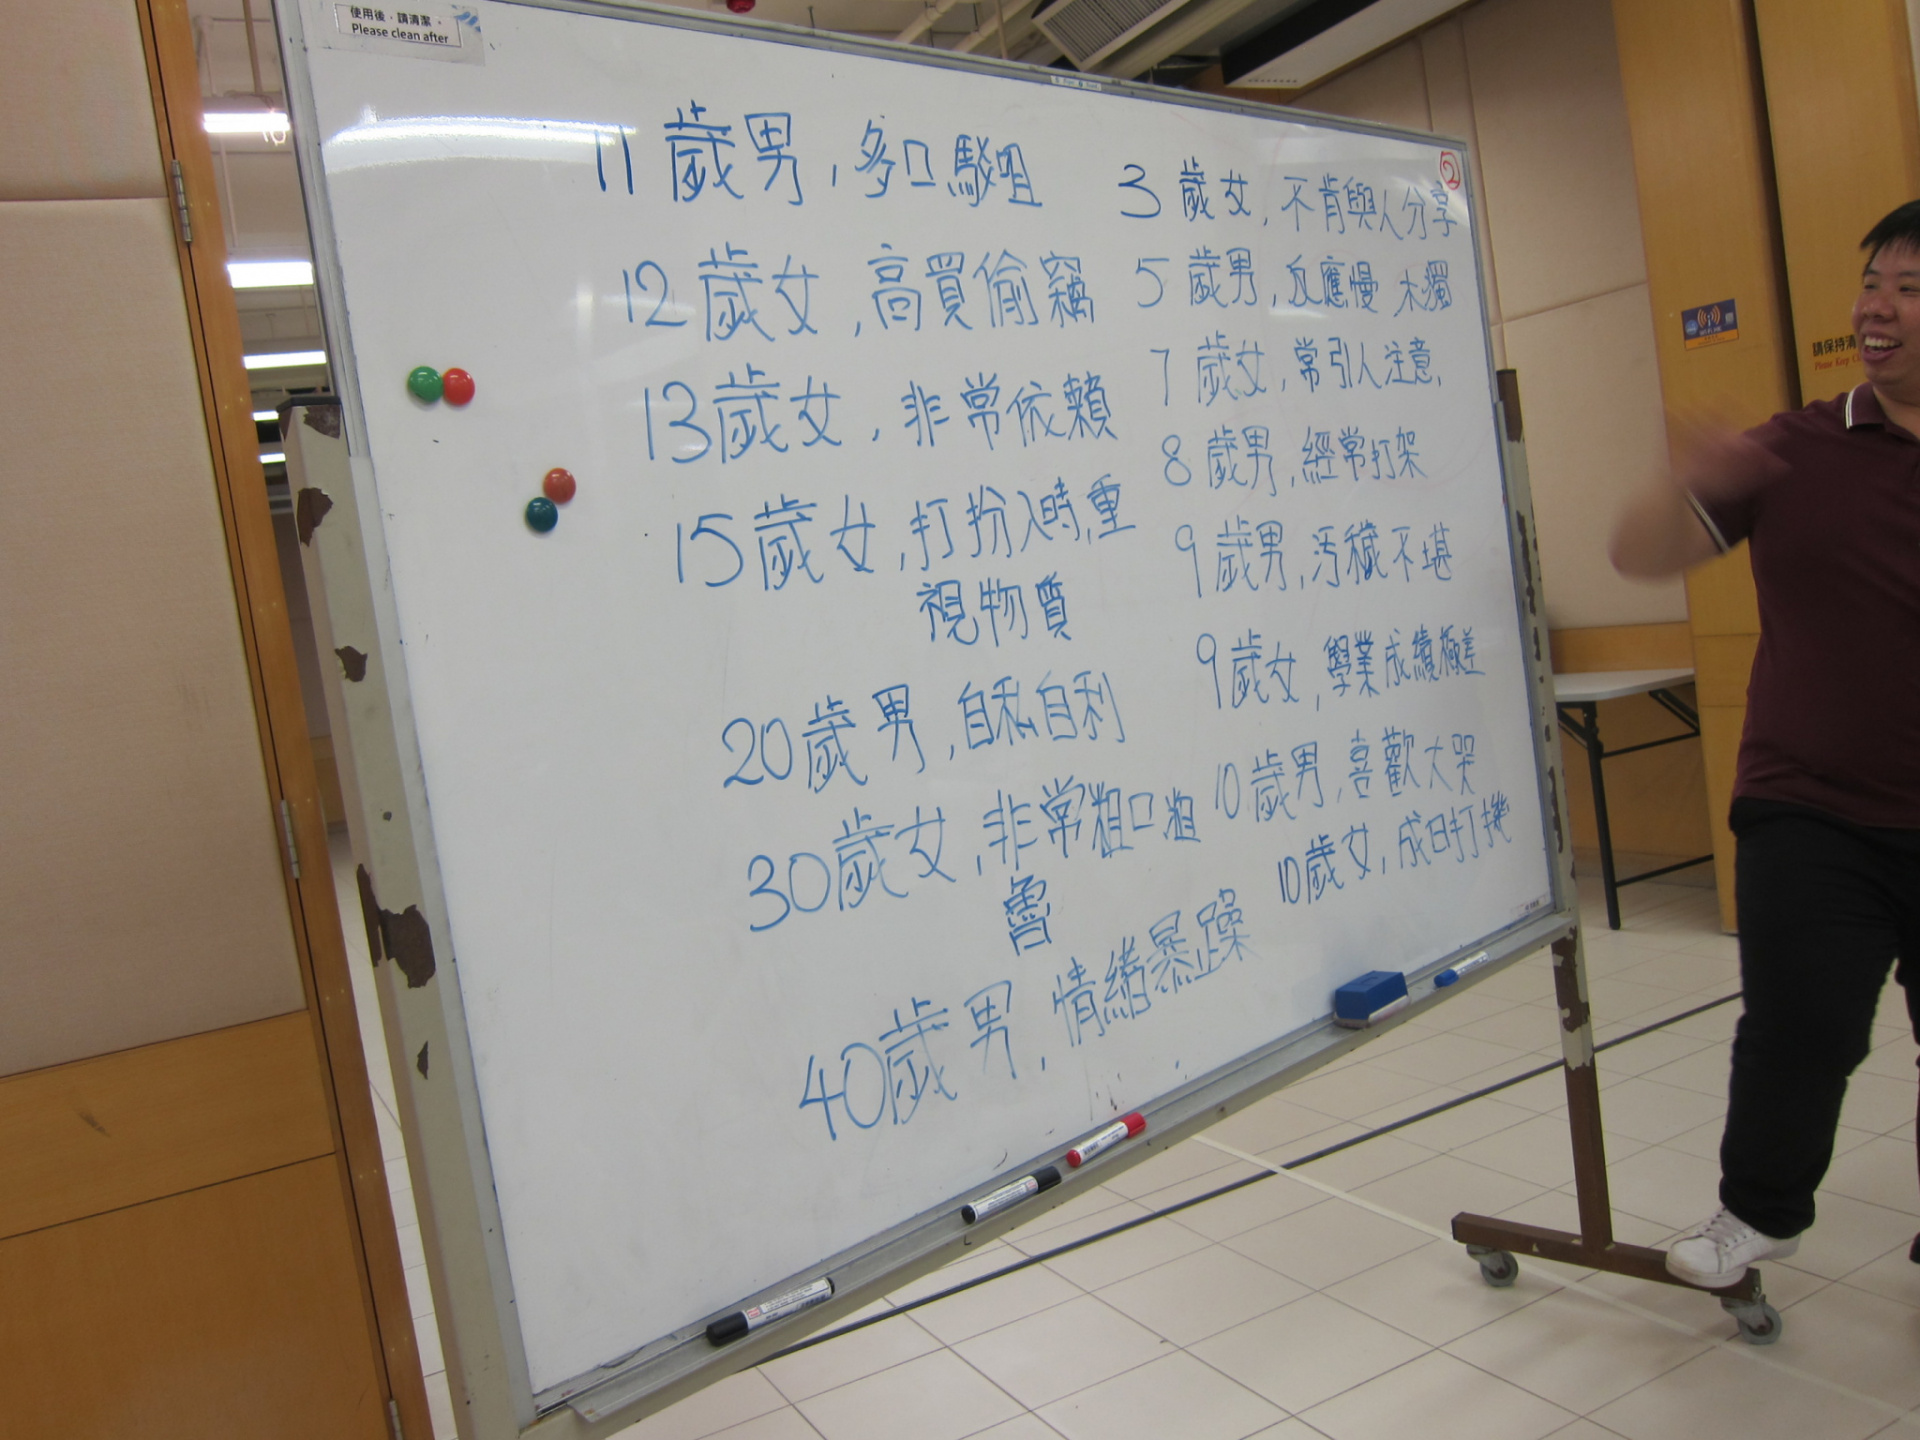 使用後，請清潔。
Please clean after
11歲男，多口駁咀
12歲女，高買偷竊
13歲女，非常依賴
15歲女，打扮入時，重
視物質
20歲男，自私自利
30歲女，非常粗口粗
魯
40歲男，情緒暴躁
②
3歲女，不肯與人分享
5歲男，反應慢 木獨
7歲女，常引人注意，
8歲男，經常打架
9歲男，污穢不堪
9歲女，學業成績極差
10歲男，喜歡大哭
10歲女，成日打機
請保持清
Please Keep